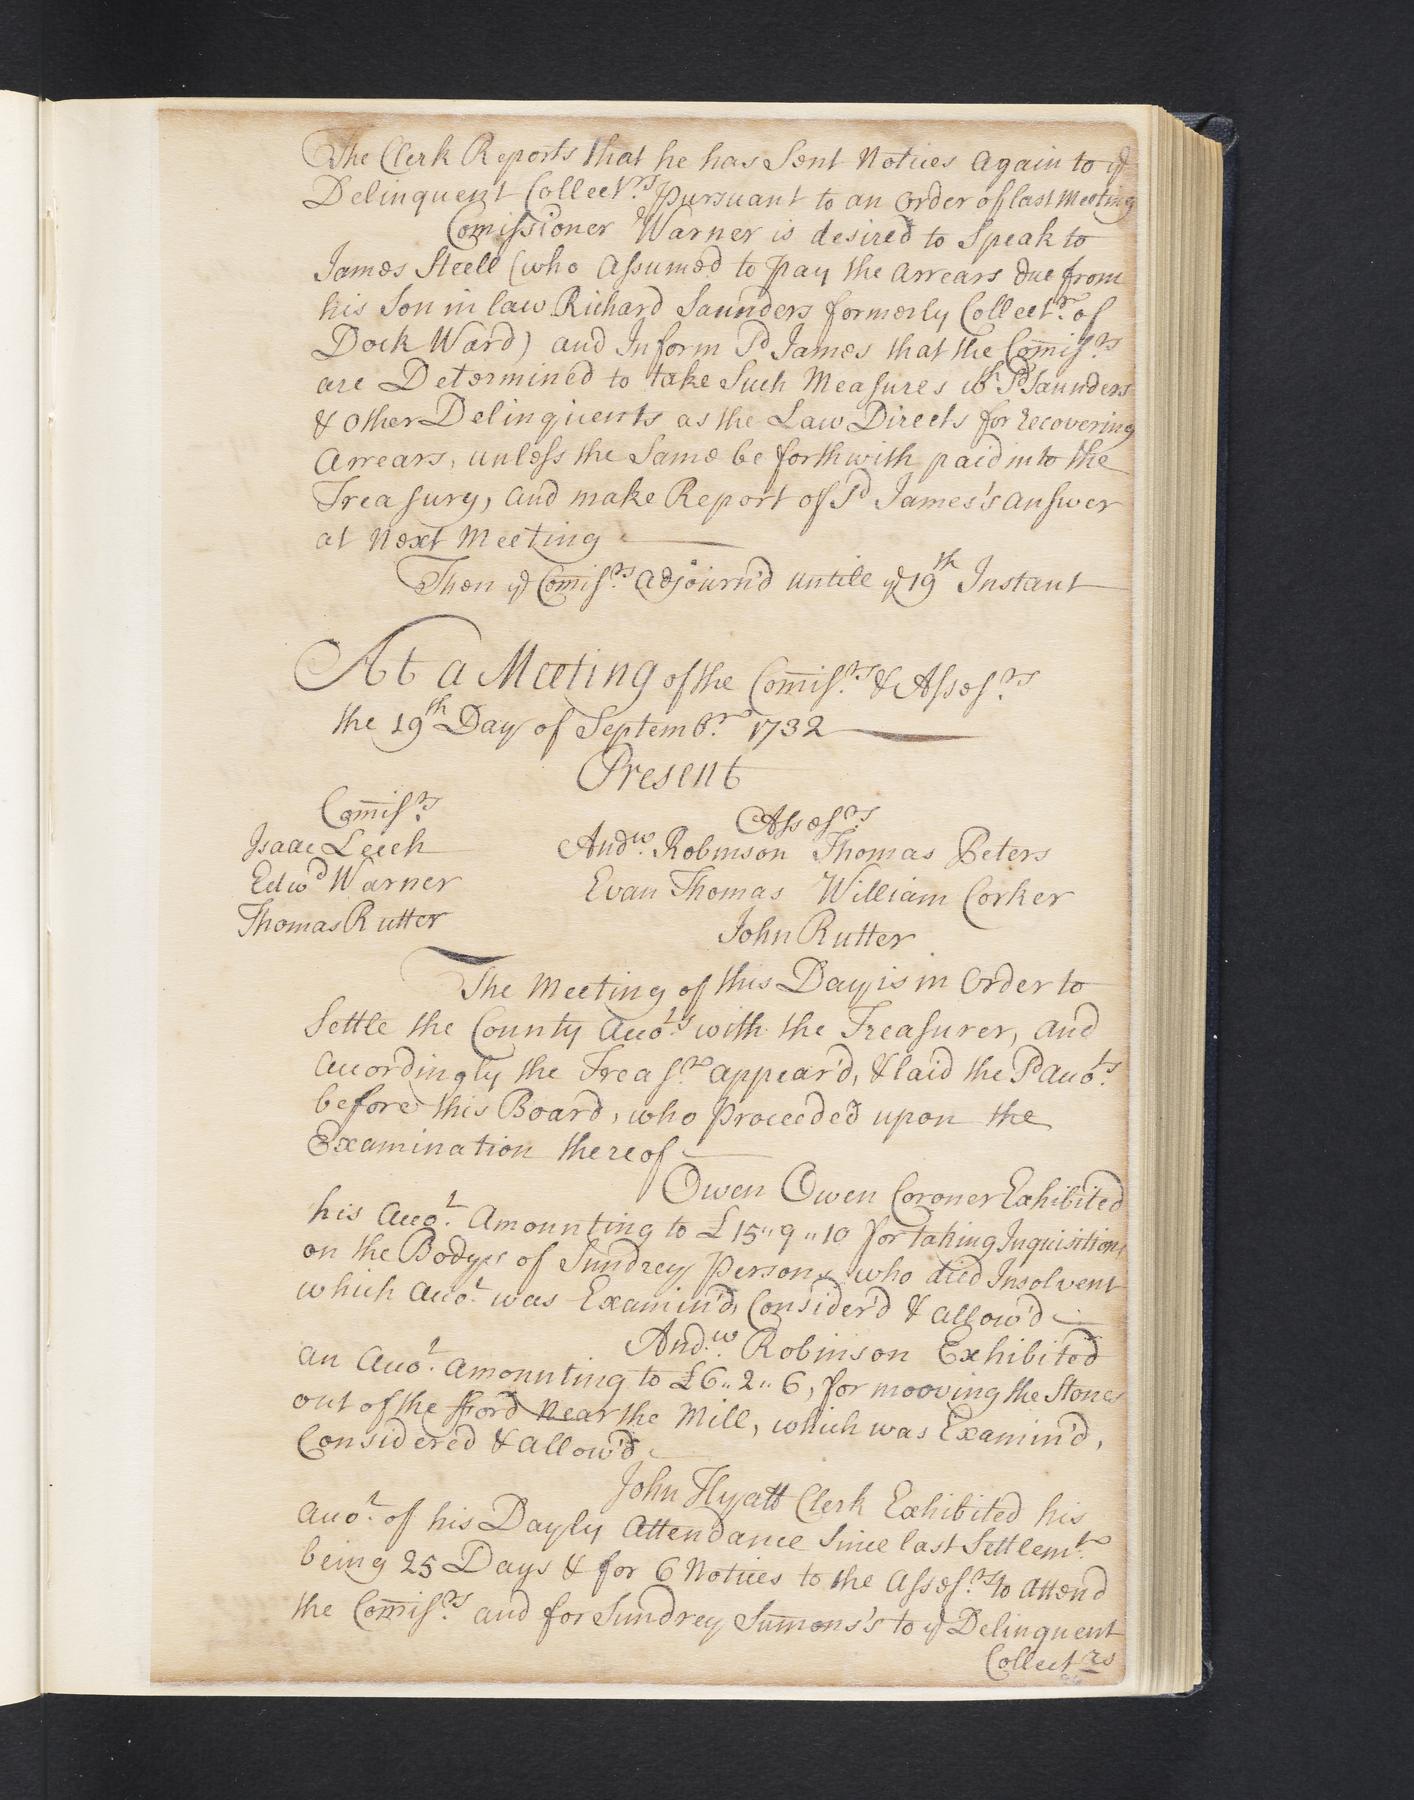 The Clerk Reports that he has Sent Notices Again to ye
Delinquent Collectrs. Pursuant to an Order of last Meeting
Comissioner Warner is desired to Speak to
James Steell (who Assumed to pay the Arrears due from
his Son in law Richard Saunders formerly Collectr. of
Dock Ward) and Inform Sd James that the Comissrs.
are Determined to take Such Measures wth Sd Saunders
& Other Delinquents as the Law Directs for recovering
Arrears, unless the Same be forthwith paid into the
Treasury, and make Report of Sd James's answer
at Next Meeting
Then ye Comissrs. adjourn'd untill ye 19th Instant
At a Meeting of the Comissrs. & Assessrs.
the 19th Day of Septembr. 1732
Present
Comissrs.
Assessrs.
Isaac Leech
Andw. Robinson Thomas Peters
Edwd Warner
Evan Thomas William Corker
Thomas Rutter
John Rutter
The Meeting of this Day is in Order to
Settle the County Accots. with the Treasurer, and
accordingly the Treasr. appear'd, & laid the Sd Accots.
before this Board, who Proceeded upon the
Examination thereof
Owen Owen Coroner Exhibited
his Accot. Amounting to £15,,9,,10 for taking Inquisitions
on the Bodys of Sundrey Persons who died Insolvent
which Accot. was Examin'd, Consider'd & allow'd
Andw. Robinson Exhibited
an Accot. amounting to £6,,2,,6, for mooving the Stones
out of the fford Near the Mill, which was Examin'd,
Considered & allow'd
John Hyatt Clerk Exhibited his
Accot. of his Dayly Attendance Since last Settlemt.
being 25 Days & for 6 Notices to the Assessrs. to attend
the Comissrs. and for Sundrey Sumons's to ye Delinquent
Collectrs